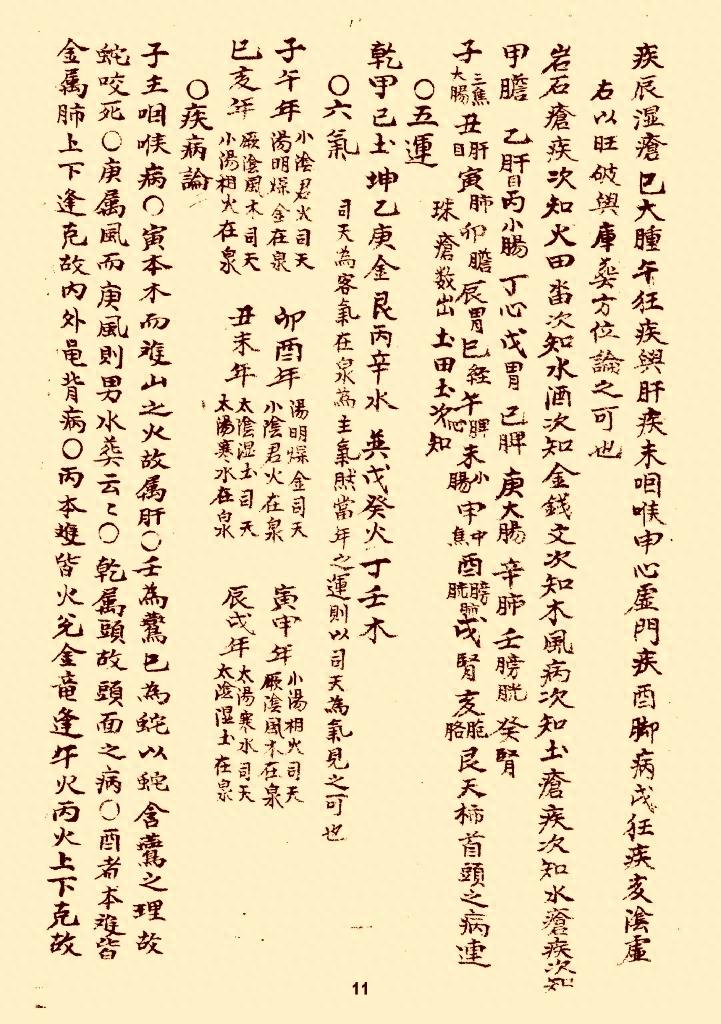 疾辰湿瘡巳大腫午狂疾與肝疾未咽喉申心虛門疾酉脚病戌狂疾亥陰虛
右以旺破與庫葬方位論之可也
岩石瘡疾次知火田畓次知水酒次知金錢文次知木風病次知土瘡疾次知水瘡疾次知
甲膽 乙肝目丙小腸 丁心戊胃 己脾 庚大腸 辛肺 壬膀胱 癸腎
子三焦大腸丑肝目寅肺卯膽辰胃巳経午脾心未小腸申中焦酉膀胱肺戌腎亥胞胳艮天柿首頭之病連
珠瘡数出土田土次知
○五運
乾甲己土坤乙庚金艮丙辛水 巽戊癸火丁壬木
○六氣 司天為客氣在泉為主氣然當年之運則以司天為氣見之可也
子午年 小陰君火司天 湯明燥金在泉 卯酉年 湯明燥金司天 小陰君火在泉 寅申年 小湯相火司天 厥陰風木在泉
巳亥年 厥陰風木司天 小湯相火在泉 丑未年 太陰湿土司天 太陽寒水在泉 辰戌年 太陽寒水司天 太陰湿土在泉
○疾病論
子主咽喉病○寅本木而艮山之火故属肝○壬為鷰巳為蛇以蛇含鷰之理故
蛇咬死○庚属風而庚風則男水葬云々○乾属頭故頭面之病○酉者本雖皆
金属肺上下逢克故內外皆背病○丙本雖皆火兌金竜逢午火丙火上下克故
11